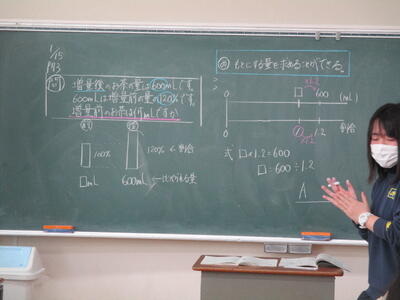 1/15
P93
問1 増量後のお茶の量は600mLです。
600mLは増量前の量の120%です。
増量前のお茶は何mLですか
100%
120% ←割合
□mL
600mL ←比べられる量
め もとにする量を求めることができる。
×1.2
0 □ 600 (mL)
0 1 1.2 割合
×1.2
式 □×1.2=600
□=600÷1.2
A